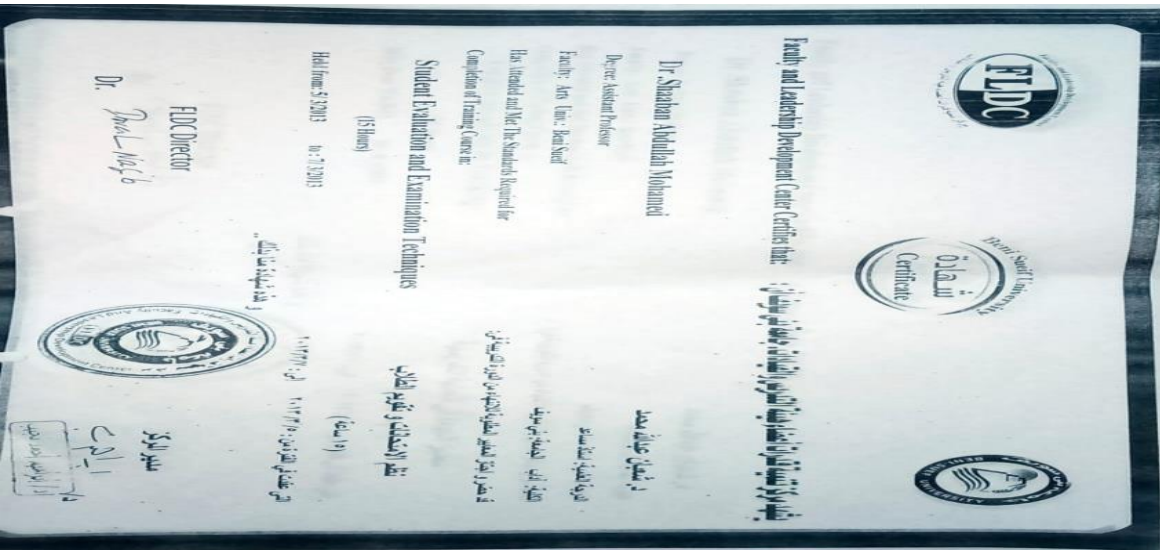 FLDC
Beni Sueif University
شهادة
Certificate
Faculty and Leadership Development Center Certifies that:
Dr. Shaaban Abdullah Mohamed
Degree: Assistant Professor
Faculty: Arts Univ.: Beni Sueif
Has Attended and Met The Standards Required for
Completion of Training Course in:
Student Evaluation and Examination Techniques
(15 Hours)
Held from: 5/3/2013 to: 7/3/2013
FLDC Director
Dr.
يشهد مركز تنمية قدرات أعضاء هيئة التدريس والقيادات بجامعة بني سويف أن:
د. شعبان عبدالله محمد
الدرجة العلمية: أستاذ مساعد
الجامعة: بني سويف
نظم الامتحانات و تقويم الطلاب
(١٥ ساعة)
التي عقدت في الفترة من: ٢٠١٣/٣/٥ إلى: ٢٠١٣/٣/٧
و هذه شهادة منا بذلك ..
مدير المركز
د/